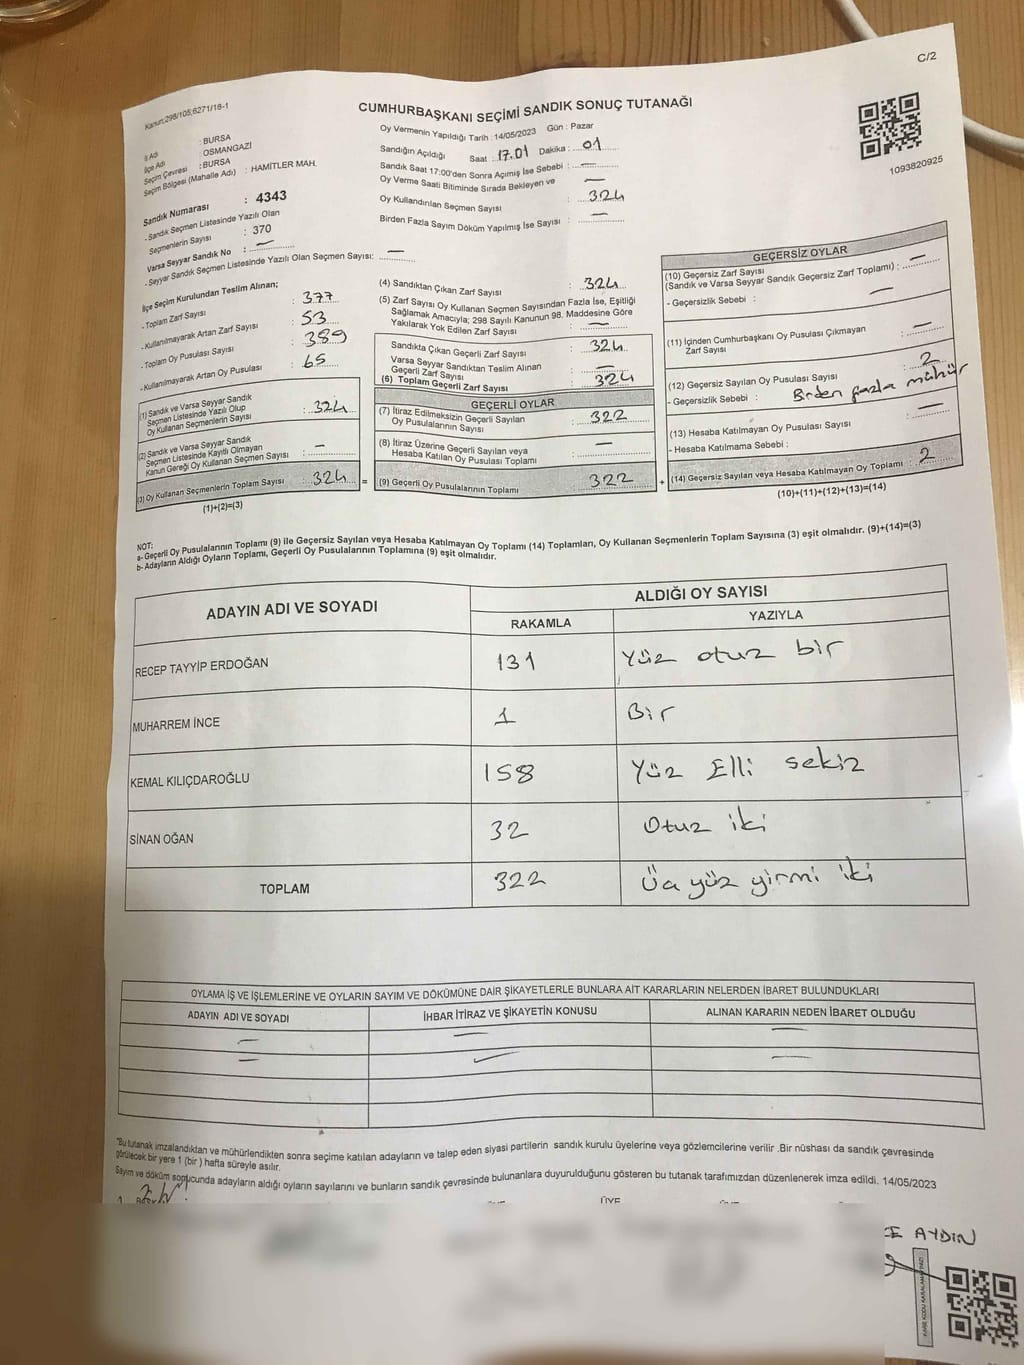 C/2
Kanun:298/105;6271/18-1
CUMHURBAŞKANI SEÇİMİ SANDIK SONUÇ TUTANAĞI
1093820925
İl Adı : BURSA
İlçe Adı : OSMANGAZİ
Seçim Çevresi : BURSA
Seçim Bölgesi (Mahalle Adı) : HAMİTLER MAH.
Sandık Numarası : 4343
-Sandık Seçmen Listesinde Yazılı Olan
Seçmenlerin Sayısı : 370
Varsa Seyyar Sandık No : —
-Seyyar Sandık Seçmen Listesinde Yazılı Olan Seçmen Sayısı: —
Oy Vermenin Yapıldığı Tarih : 14/05/2023 Gün : Pazar
Sandığın Açıldığı Saat : 17.01 Dakika : 01
Sandık Saat 17:00'den Sonra Açımış İse Sebebi : —
Oy Verme Saati Bitiminde Sırada Bekleyen ve —
Oy Kullandırılan Seçmen Sayısı : 324
Birden Fazla Sayım Döküm Yapılmış İse Sayısı : —
İlçe Seçim Kurulundan Teslim Alınan;
-Toplam Zarf Sayısı : 377
-Kullanılmayarak Artan Zarf Sayısı : 53
-Toplam Oy Pusulası Sayısı : 389
-Kullanılmayarak Artan Oy Pusulası : 65
(1) Sandık ve Varsa Seyyar Sandık
Seçmen Listesinde Yazılı Olup
Oy Kullanan Seçmenlerin Sayısı : 324
(2) Sandık ve Varsa Seyyar Sandık
Seçmen Listesinde Kayıtlı Olmayan
Kanun Gereği Oy Kullanan Seçmen Sayısı : —
(3) Oy Kullanan Seçmenlerin Toplam Sayısı : 324
(1)+(2)=(3)
(4) Sandıktan Çıkan Zarf Sayısı : 324
(5) Zarf Sayısı Oy Kullanan Seçmen Sayısından Fazla İse, Eşitliği
Sağlamak Amacıyla; 298 Sayılı Kanunun 98. Maddesine Göre
Yakılarak Yok Edilen Zarf Sayısı : —
Sandıkta Çıkan Geçerli Zarf Sayısı : 324
Varsa Seyyar Sandıktan Teslim Alınan
Geçerli Zarf Sayısı : —
(6) Toplam Geçerli Zarf Sayısı : 324
GEÇERLİ OYLAR
(7) İtiraz Edilmeksizin Geçerli Sayılan
Oy Pusulalarının Sayısı : 322
(8) İtiraz Üzerine Geçerli Sayılan veya
Hesaba Katılan Oy Pusulası Toplamı : —
= (9) Geçerli Oy Pusulalarının Toplamı : 322
GEÇERSİZ OYLAR
(10) Geçersiz Zarf Sayısı
(Sandık ve Varsa Seyyar Sandık Geçersiz Zarf Toplamı) : —
- Geçersizlik Sebebi : —
(11) İçinden Cumhurbaşkanı Oy Pusulası Çıkmayan
Zarf Sayısı : —
(12) Geçersiz Sayılan Oy Pusulası Sayısı : 2
- Geçersizlik Sebebi : Birden fazla mühür
(13) Hesaba Katılmayan Oy Pusulası Sayısı : —
- Hesaba Katılmama Sebebi :
+ (14) Geçersiz Sayılan veya Hesaba Katılmayan Oy Toplamı : 2
(10)+(11)+(12)+(13)=(14)
NOT:
a- Geçerli Oy Pusulalarının Toplamı (9) ile Geçersiz Sayılan veya Hesaba Katılmayan Oy Toplamı (14) Toplamları, Oy Kullanan Seçmenlerin Toplam Sayısına (3) eşit olmalıdır. (9)+(14)=(3)
b- Adayların Aldığı Oyların Toplamı, Geçerli Oy Pusulalarının Toplamına (9) eşit olmalıdır.
ADAYIN ADI VE SOYADI ALDIĞI OY SAYISI
RAKAMLA YAZIYLA
RECEP TAYYİP ERDOĞAN 131 Yüz otuz bir
MUHARREM İNCE 1 Bir
KEMAL KILIÇDAROĞLU 158 Yüz Elli sekiz
SİNAN OĞAN 32 Otuz iki
TOPLAM 322 Üç yüz yirmi iki
OYLAMA İŞ VE İŞLEMLERİNE VE OYLARIN SAYIM VE DÖKÜMÜNE DAİR ŞİKAYETLERLE BUNLARA AİT KARARLARIN NELERDEN İBARET BULUNDUKLARI
ADAYIN ADI VE SOYADI İHBAR İTİRAZ VE ŞİKAYETİN KONUSU ALINAN KARARIN NEDEN İBARET OLDUĞU
"Bu tutanak imzalandıktan ve mühürlendikten sonra seçime katılan adayların ve talep eden siyasi partilerin sandık kurulu üyelerine veya gözlemcilerine verilir .Bir nüshası da sandık çevresinde
görülecek bir yere 1 (bir ) hafta süreyle asılır.
Sayım ve döküm sonucunda adayların aldığı oyların sayılarını ve bunların sandık çevresinde bulunanlara duyurulduğunu gösteren bu tutanak tarafımızdan düzenlenerek imza edildi. 14/05/2023
ÜYE
AYDIN
KARE KODU KARALAMAYINIZ!